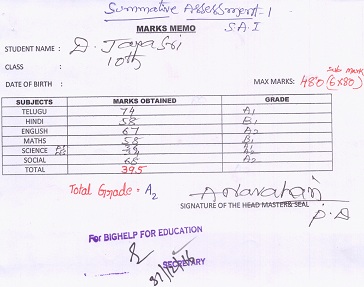 Summative Assessment-1
MARKS MEMO
S.A.I
STUDENT NAME : D. Jaya Sri
CLASS : 10th
Sub Mark
DATE OF BIRTH :
MAX MARKS: 480 (6x80)
SUBJECTS MARKS OBTAINED GRADE
TELUGU 74 A1
HINDI 58 B1
ENGLISH 67 A2
MATHS 58 B1
SCIENCE
SOCIAL 68 A2
TOTAL 395
Total Grade = A2
SIGNATURE OF THE HEAD MASTER& SEAL
For BIGHELP FOR EDUCATION
SECRETARY